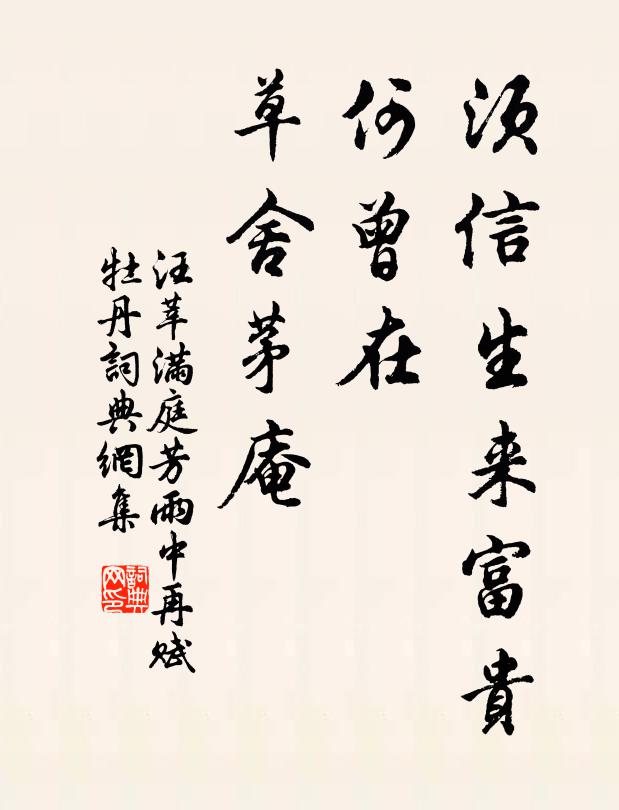 须信生来富貴
何曾在
草舍茅庵
汪莘满庭芳雨中再赋
牡丹詞典網集
詞典
网印